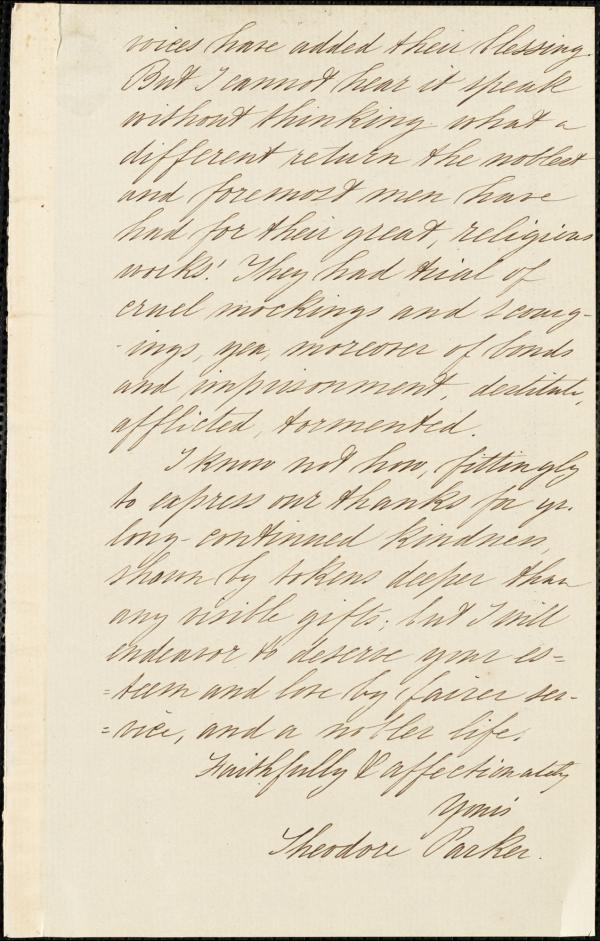 voices have added their blessing.
But I cannot hear it speak
without thinking what a
different return the noblest
and foremost men have
had for their great, religious
works! They had trial of
cruel mockings and scourg-
-ings, yea, moreover of bonds
and imprisonment, destitute,
afflicted, tormented.
I know not how, fittingly
to express our thanks for yr.
long-continued kindness,
shown by tokens deeper than
any visible gifts; but I will
endeavor to deserve your es=
=teem and love by fairer ser-
=vice, and a nobler life.
Faithfully & affectionately
Yours
Theodore Parker.